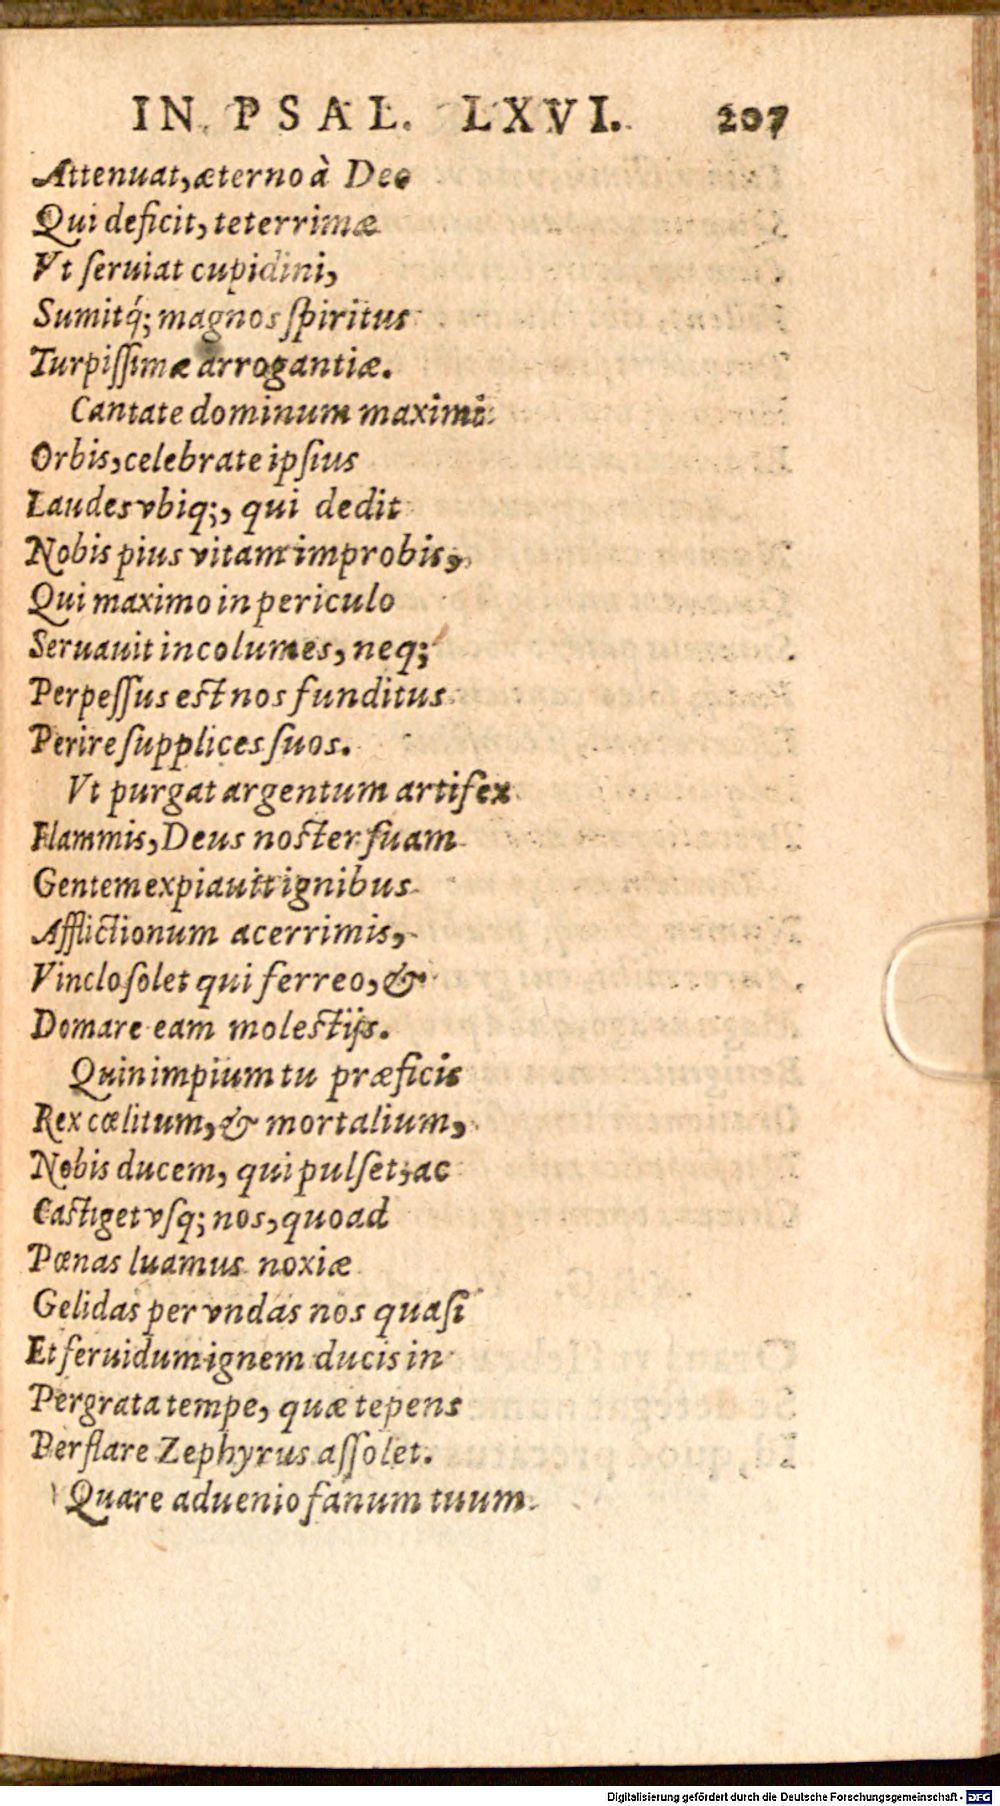 IN PSAL. LXVI. 207
Attenuat, æterno à Deo
Qui deficit, teterrimæ
Vt ſeruiat cupidini,
Sumitq́; magnos ſpiritus
Turpiſſimæ arrogantiæ.
Cantate dominum maximi
Orbis, celebrate ipſius
Laudes vbiq;, qui dedit
Nobis pius vitam improbis,
Qui maximo in periculo
Seruauit incolumes, neq;
Perpeſſus est nos funditus
Perire ſupplices ſuos.
Vt purgat argentum artifex
Flammis, Deus noster ſuam
Gentem expiauit ignibus
Afflictionum acerrimis,
Vinclo ſolet qui ferreo, &
Domare eam molestijs.
Quin impium tu præficis
Rex cœlitum, & mortalium,
Nobis ducem, qui pulſet, ac
Castiget vſq; nos, quoad
Pœnas luamus noxiæ
Gelidas per vndas nos quaſi
Et feruidum ignem ducis in
Pergrata tempe, quæ tepens
Perflare Zephyrus aſſolet.
Quare aduenio fanum tuum
Digitalisierung gefördert durch die Deutsche Forschungsgemeinschaft - DFG